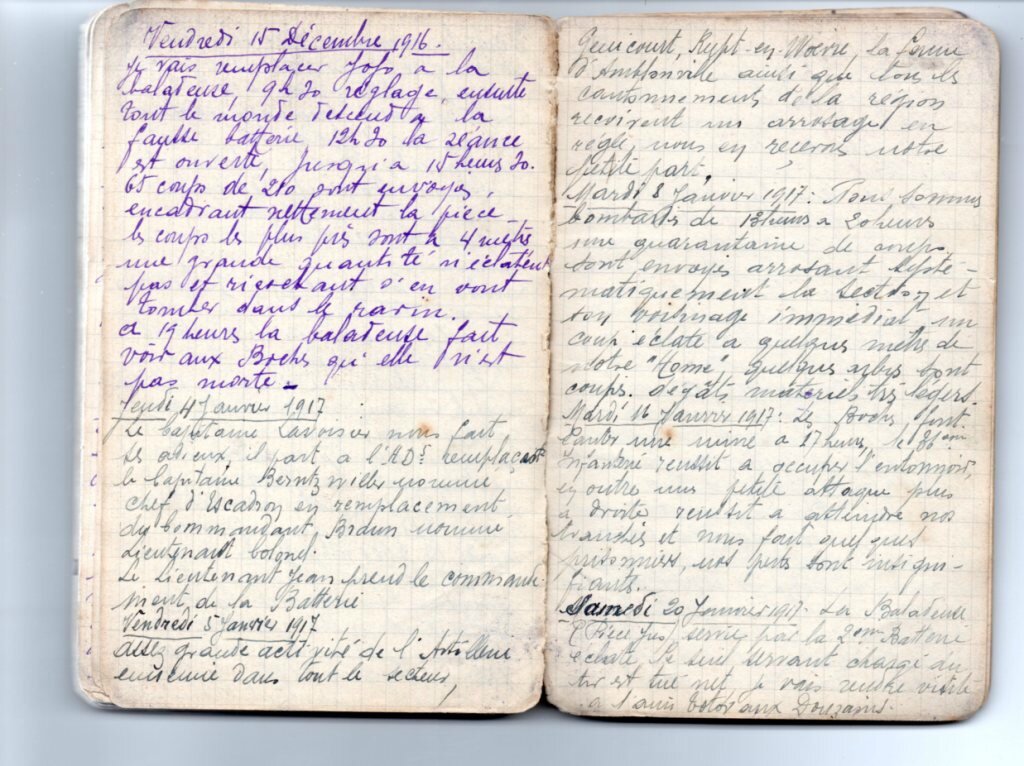 Vendredi 15 Décembre 1916.
Je vais remplacer Jojo à la
baladeuse, 9h30 réglage, ensuite
tout le monde descend à la
fausse batterie 12h30 la séance
est ouverte, jusqu'à 15 heures 30.
65 coups de 210 sont envoyés,
encadrant nettement la pièce
les coups les plus près sont à 4 mètres
une grande quantité n'éclatent
pas et ricochant s'en vont
tomber dans le ravin.
à 19 heures la baladeuse fait
voir aux Boches qu'elle n'est
pas morte -
Jeudi 4 Janvier 1917
Le Capitaine Lavoisier nous fait
ses adieux, il part à l'AD remplaçant
le Capitaine nommé
chef d'Escadron en remplacement
du Commandant Braun nommé
Lieutenant Colonel.
Le Lieutenant Jean prend le commande-
ment de la Batterie
Vendredi 5 Janvier 1917
assez grande activité de l'Artillerie
ennemie dans tout le secteur,
Genicourt, Rupt-en-Woevre, la ferme
d'Amblonville ainsi que tous les
cantonnements de la région
reçoivent un arrosage en
règle, nous en recevons notre
petite part.
Mardi 8 Janvier 1917: Nous sommes
bombardés de heures à 20 heures
une quarantaine de coups
sont envoyés arrosant systé-
matiquement la section et
son voisinage immédiat un
coup éclate à quelques mètres de
notre "Home", quelques arbres sont
coupés. dégâts matériels très légers.
Mardi 16 Janvier 1917: Les Boches font
sauter une mine à 17 heures, le
Infanterie reussit à occuper l'entonnoir,
en outre une petite attaque plus
à droite reussit à atteindre nos
tranchées et nous fait quelques
prisonniers, nos pertes sont insigni-
fiantes.
Samedi 20 Janvier 1917: La Baladeuse
(Pièce Jus) servie par la 2ème Batterie
éclate, le seul servant chargé du
tir est tué net, je vais rendre visite
à l'ami aux